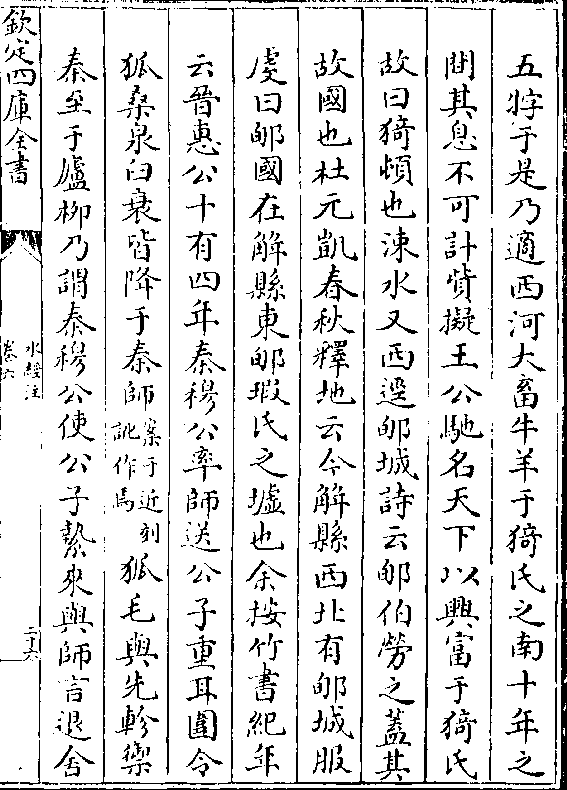 五牸于是乃適西河大畜牛羊于猗氏之南十年之
間其息不可計貲擬王公馳名天下以興富于猗氏
故曰猗頓也涑水又西逕郇城詩云郇伯勞之蓋其
故國也杜元凱春秋釋地云今解縣西北有郇城服
虔曰郇國在解縣東郇瑕氏之墟也余按竹書紀年
云晉惠公十有四年秦穆公率師送公子重耳圍令
狐桑泉臼衰皆降于秦師案于近刻訛作焉狐毛與先軫禦
秦至于廬柳乃謂秦穆公使公子縶來與師言退舍
欽定四庫全書
水經注
卷六
二十六